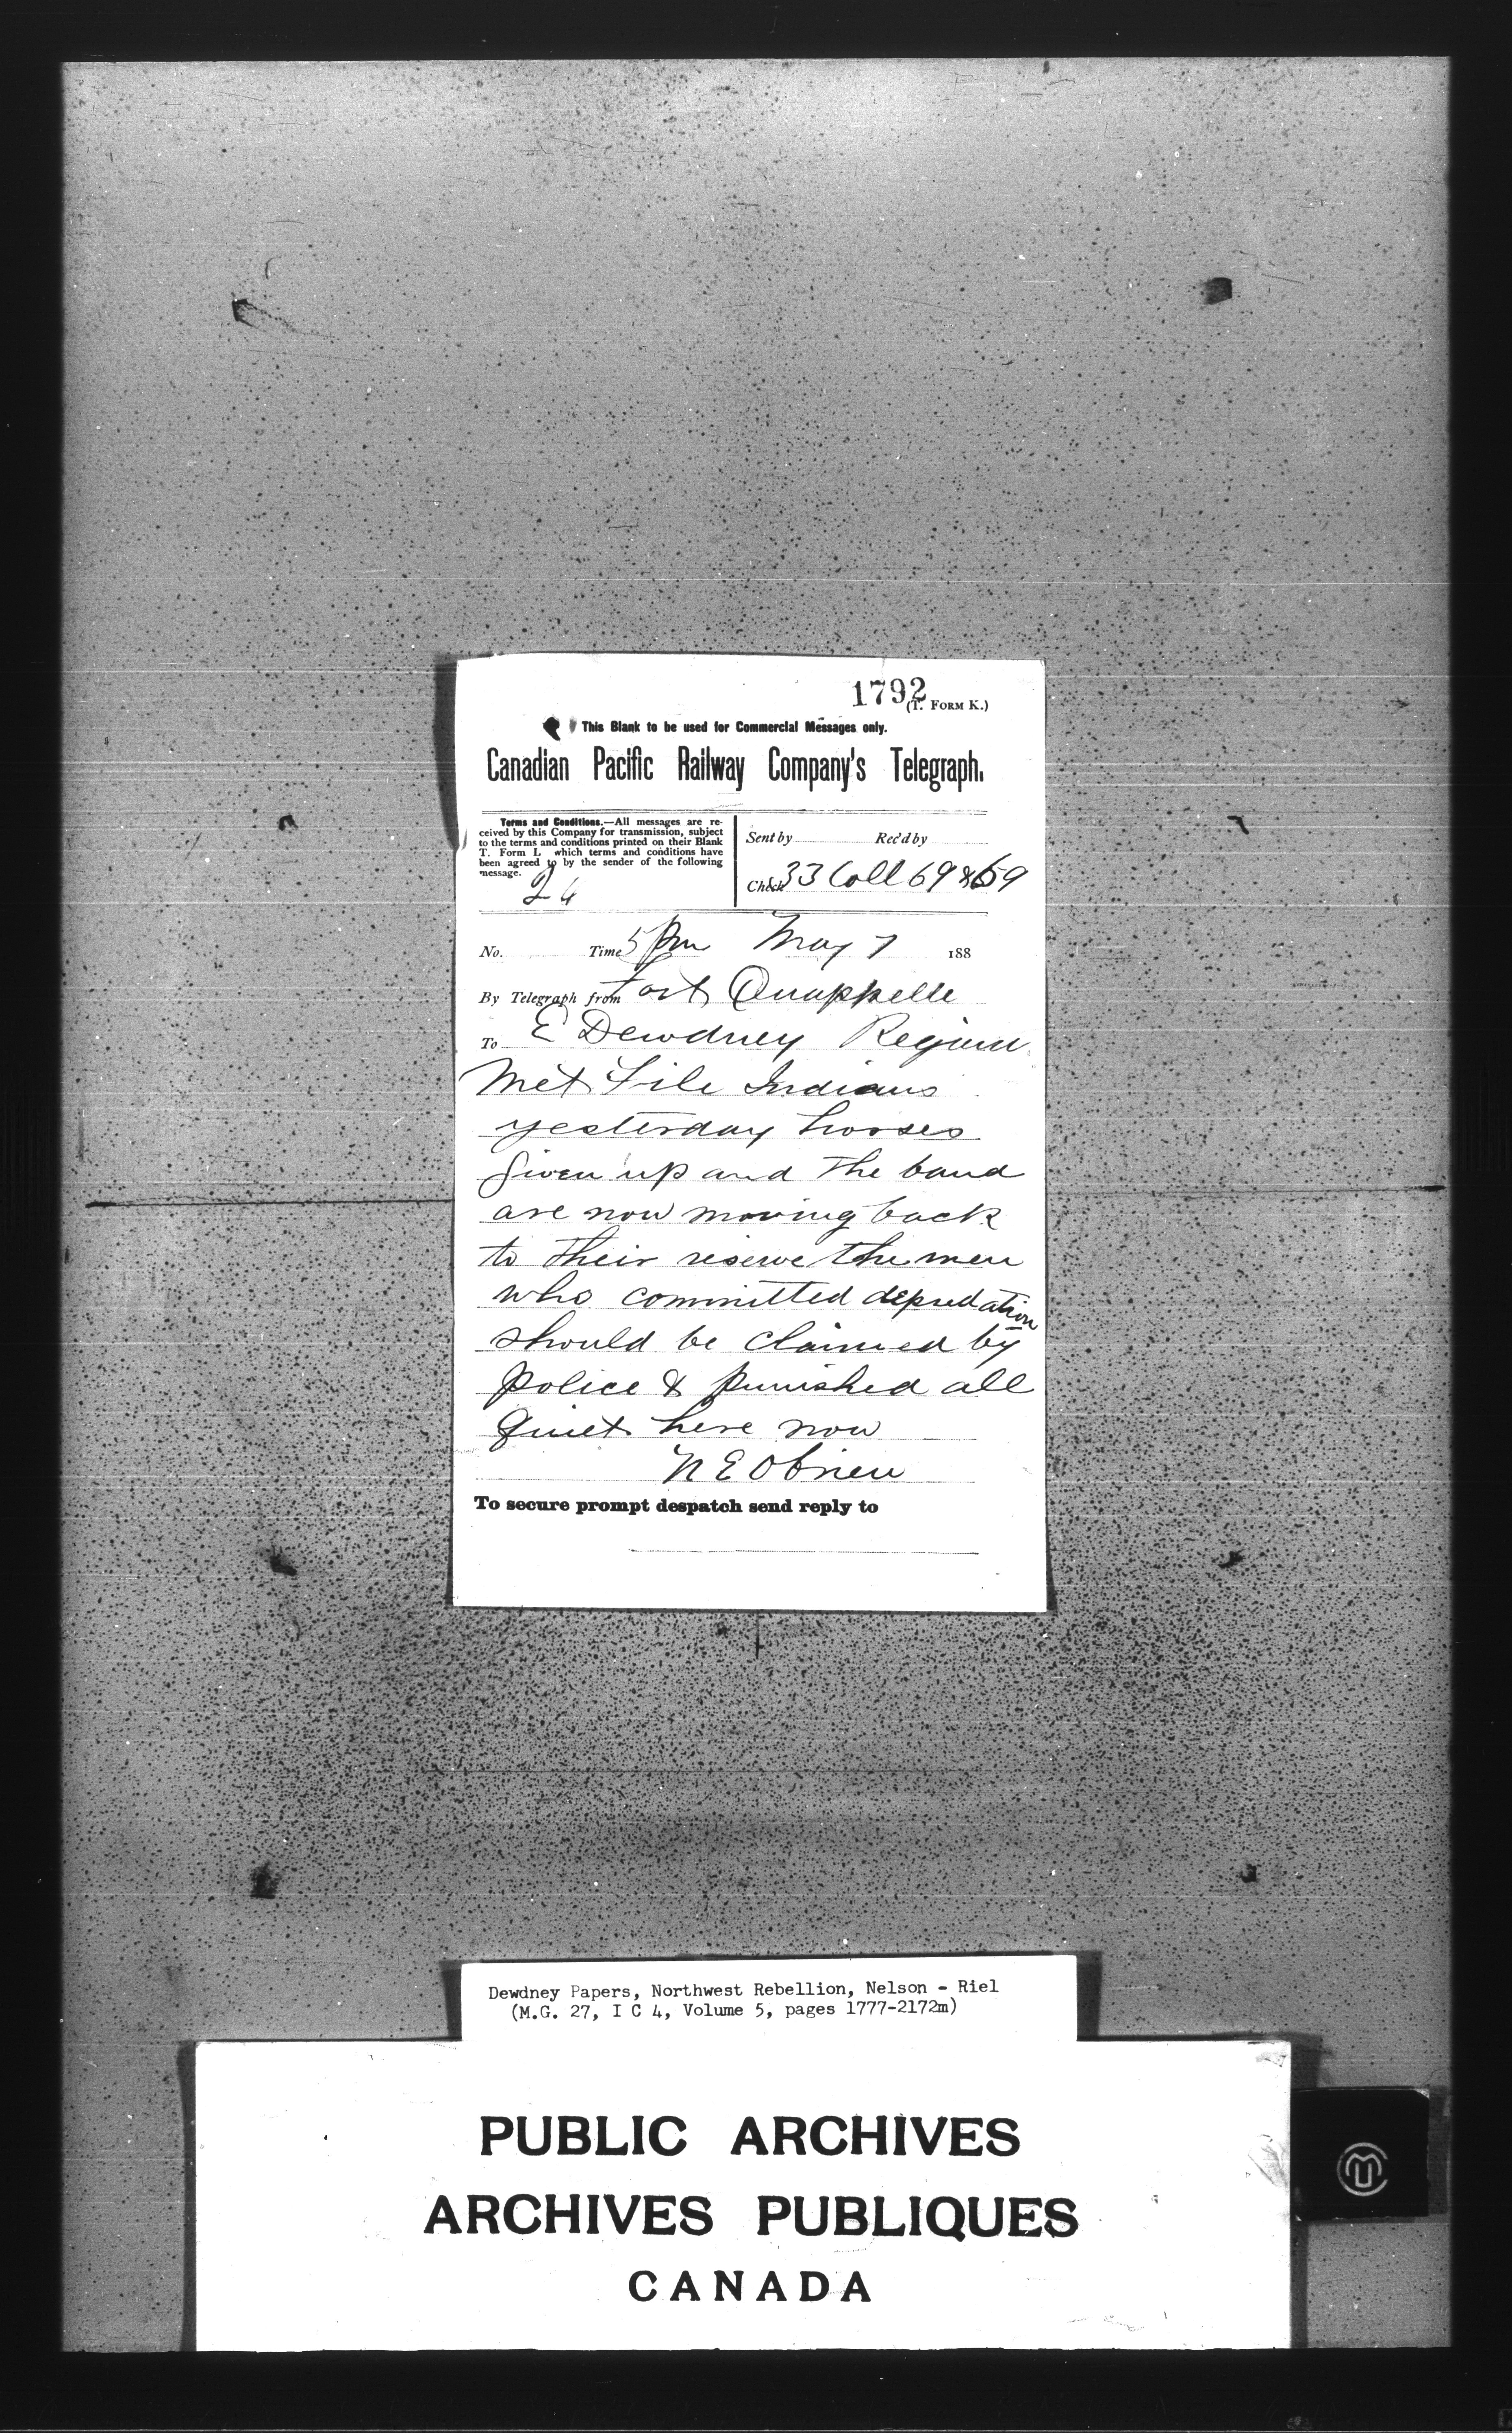 1792
(T. FORM K.)
This Blank to be used for Commercial Messages only.
Canadian Pacific Railway Company's Telegraph.
Terms and Conditions.—All messages are re-
ceived by this Company for transmission, subject
to the terms and conditions printed on their Blank
T. Form I., which terms and conditions have
been agreed to by the sender of the following
message.
24
Sent by Rec'd by
Check 33 Coll 69 & 69
No. Time 5 Pm May 7 188
By Telegraph from Fort Quappelle
To E Dewdney Regina
Met File Indians
yesterday horses
given up and the band
are now moving back
to their reserve the men
who committed depredation
should be claimed by
police & punished all
quiet here now
N E Obrien
To secure prompt despatch send reply to
Dewdney Papers, Northwest Rebellion, Nelson - Riel
(M.G. 27, I C 4, Volume 5, pages 1777-2172m)
PUBLIC ARCHIVES
ARCHIVES PUBLIQUES
CANADA